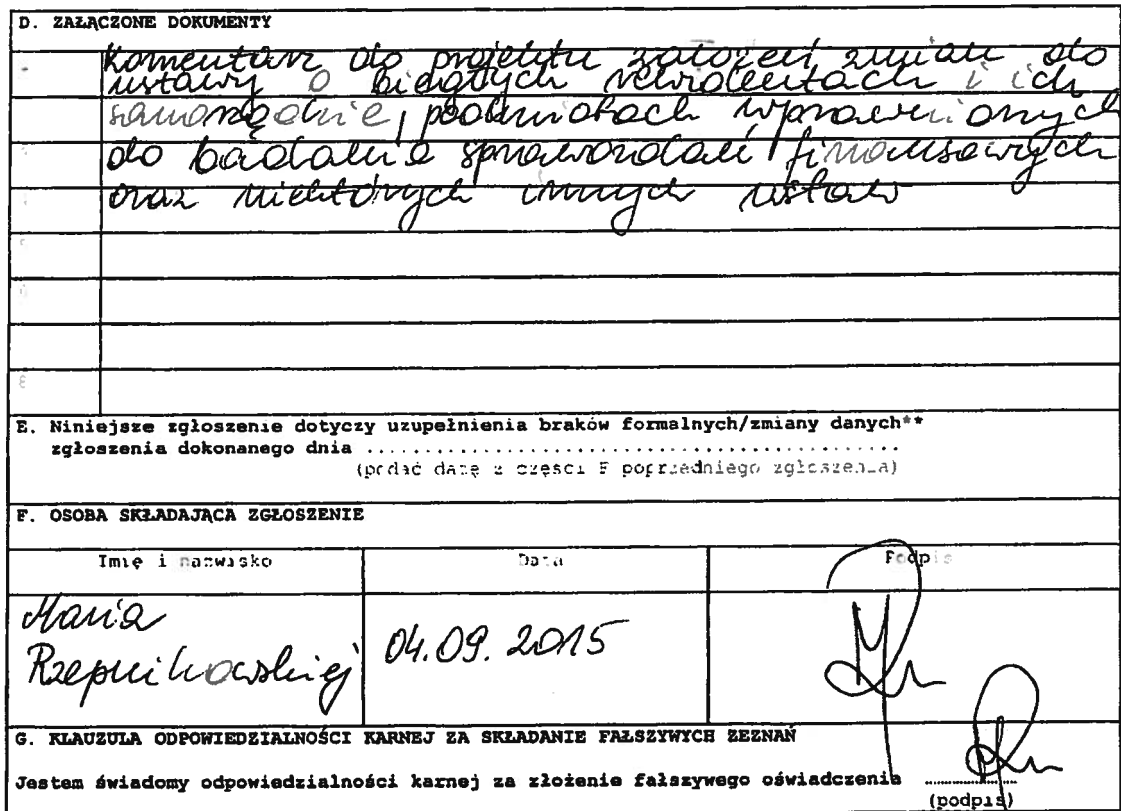 D. ZAŁĄCZONE DOKUMENTY
Komentarz do projektu założeń zmian do
ustawy o biegłych rewidentach i ich
samorządzie, podmiotach uprawnionych
do badania sprawozdań finansowych
oraz niektórych innych ustaw
8
E. Niniejsze zgłoszenie dotyczy uzupełnienia braków formalnych/zmiany danych**
zgłoszenia dokonanego dnia ................................................
(podać datę z części F poprzedniego zgłoszenia)
F. OSOBA SKŁADAJĄCA ZGŁOSZENIE
Imię i nazwisko Data Podpis
Maria
Rzepnikowskiej 04.09.2015
G. KLAUZULA ODPOWIEDZIALNOŚCI KARNEJ ZA SKŁADANIE FAŁSZYWYCH ZEZNAŃ
Jestem świadomy odpowiedzialności karnej za złożenie fałszywego oświadczenia ..................
(podpis)